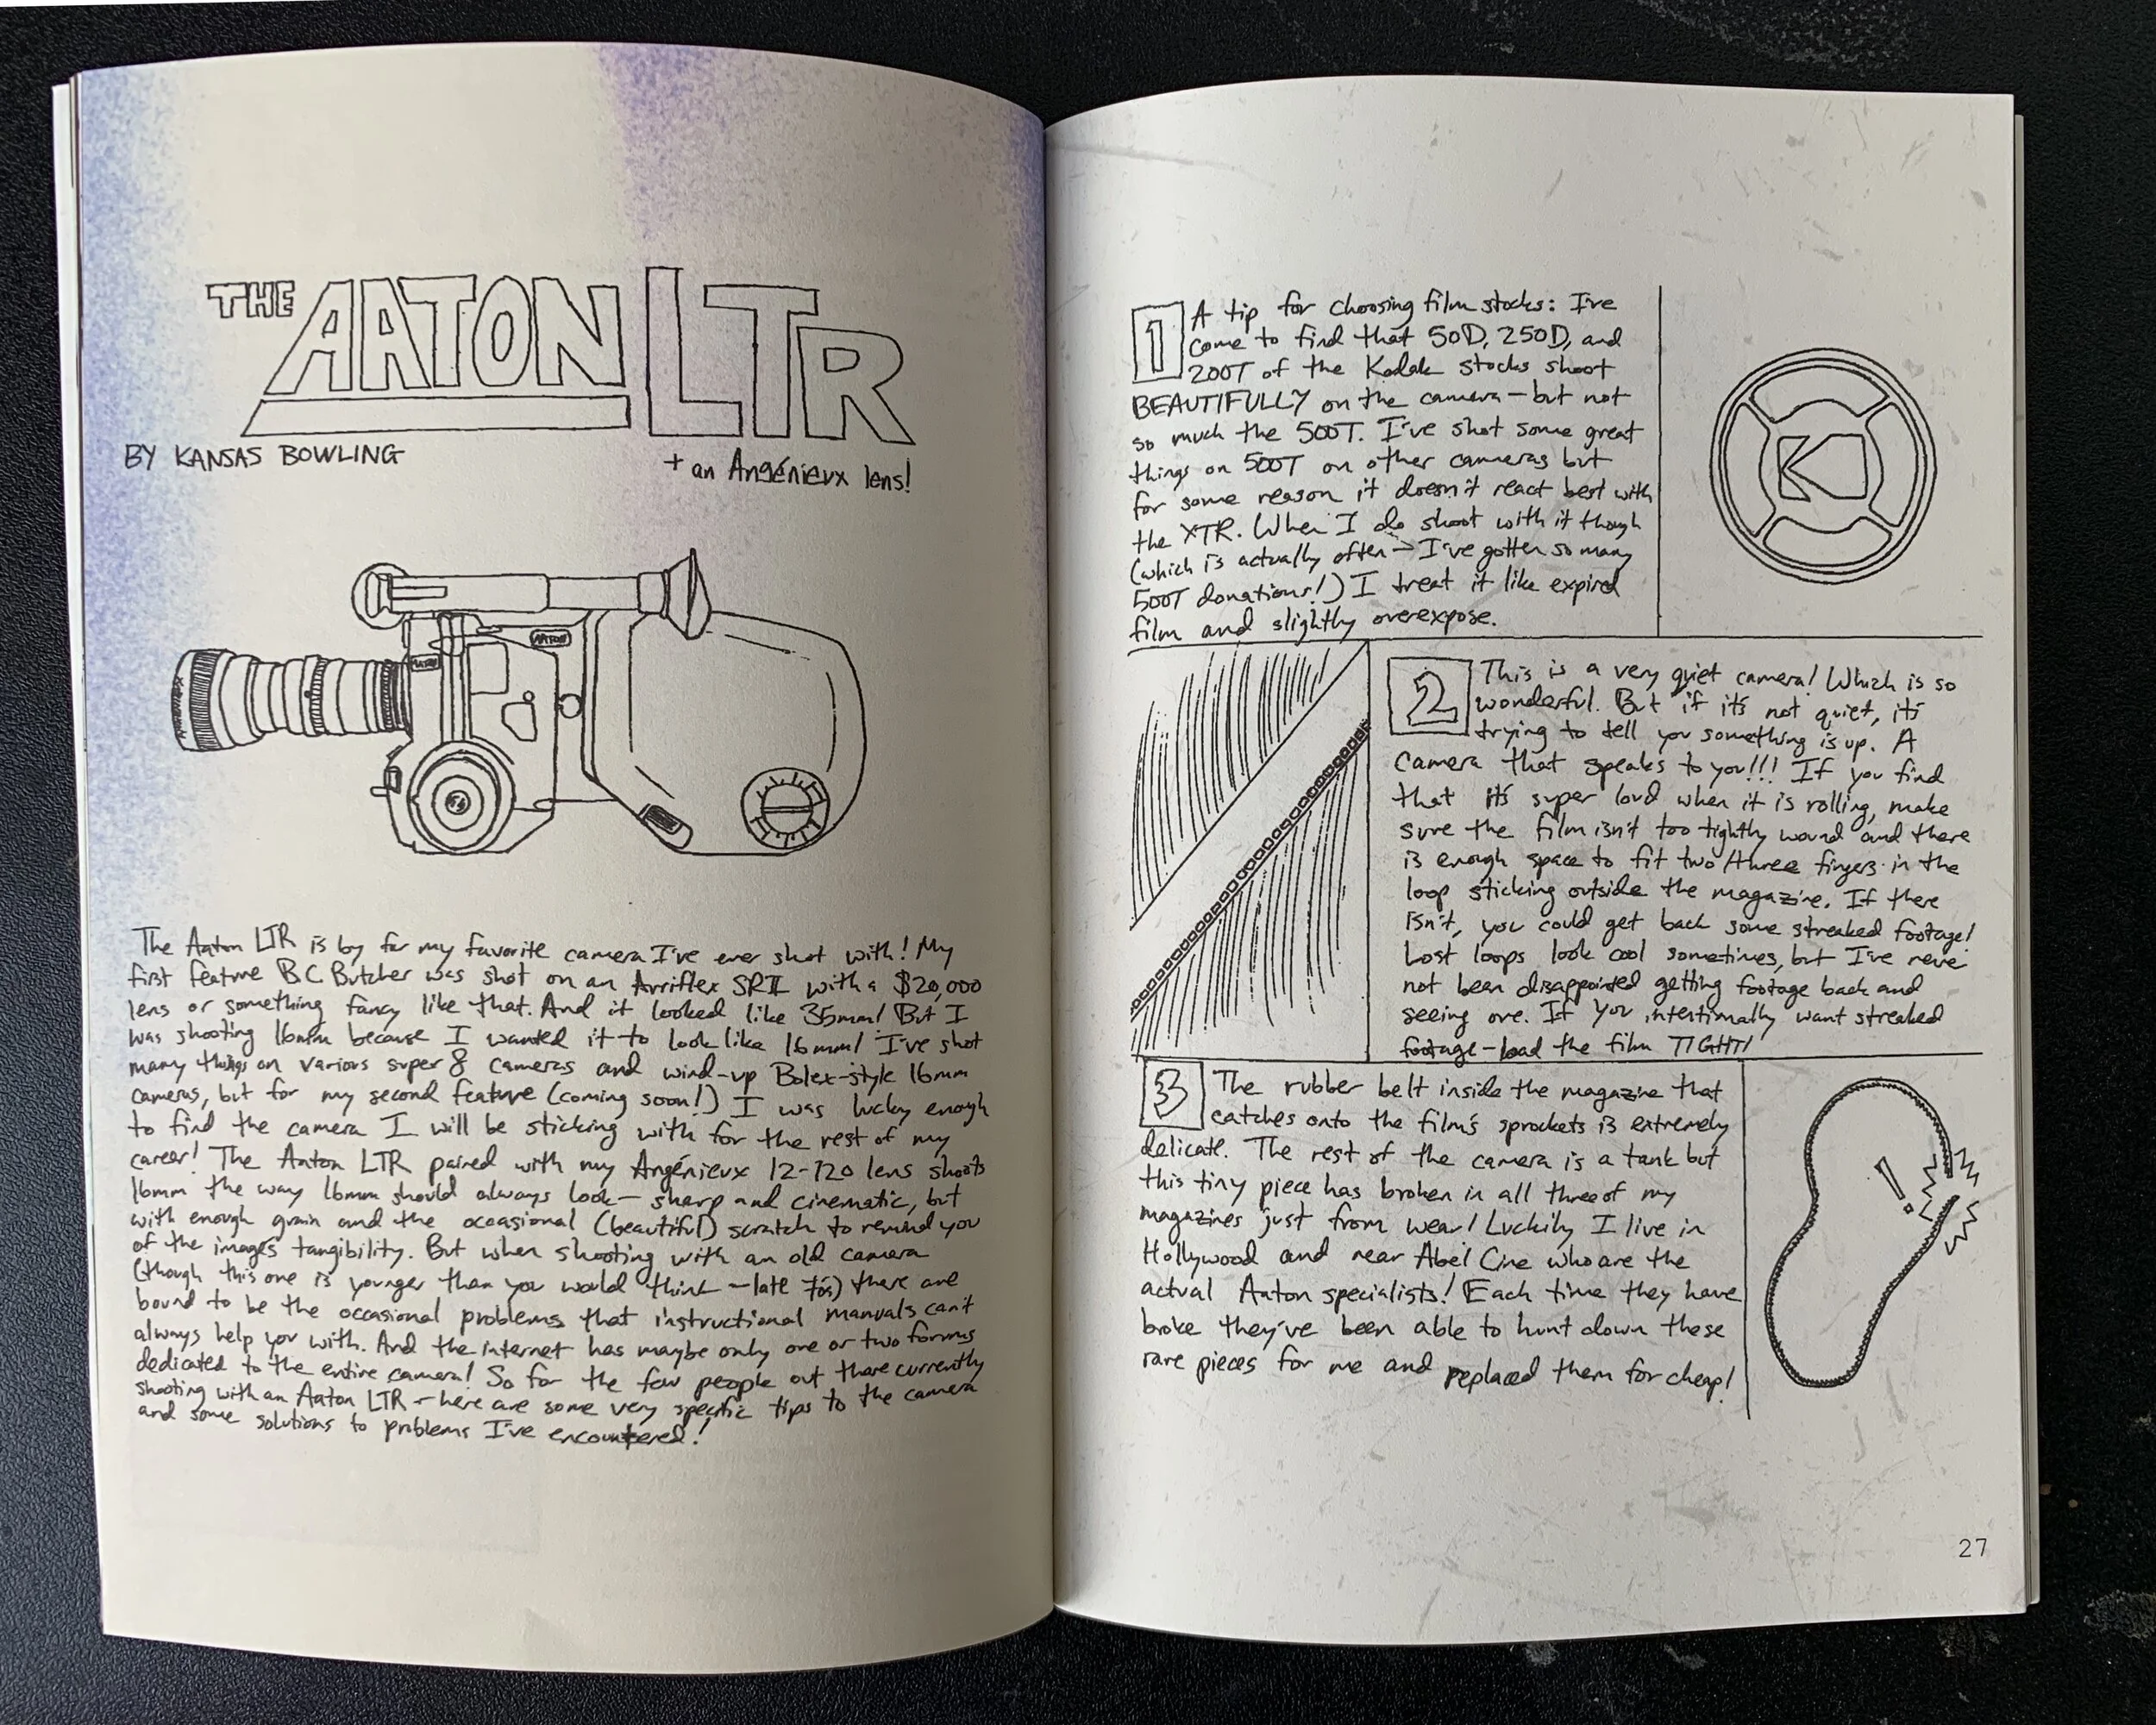 THE AATON LTR
BY KANSAS BOWLING
+ an Angénieux lens!
AATON
AATON
The Aaton LTR is by far my favorite camera I've ever shot with! My
first feature B.C. Butcher was shot on an Arriflex SRII with a $20,000
lens or something fancy like that. And it looked like 35mm! But I
was shooting 16mm because I wanted it to look like 16mm! I've shot
many things on various super 8 cameras and wind-up Bolex-style 16mm
cameras, but for my second feature (coming soon!) I was lucky enough
to find the camera I will be sticking with for the rest of my
career! The Aaton LTR paired with my Angénieux 12-120 lens shoots
16mm the way 16mm should always look — sharp and cinematic, but
with enough grain and the occasional (beautiful) scratch to remind you
of the images tangibility. But when shooting with an old camera
(though this one is younger than you would think — late 70s) there are
bound to be the occasional problems that instructional manuals can't
always help you with. And the internet has maybe only one or two forums
dedicated to the entire camera! So for the few people out there currently
shooting with an Aaton LTR — here are some very specific tips to the camera
and some solutions to problems I've encountered!
1 A tip for choosing film stocks: I've
come to find that 50D, 250D, and
200T of the Kodak stocks shoot
BEAUTIFULLY on the camera — but not
so much the 500T. I've shot some great
things on 500T on other cameras but
for some reason it doesn't react best with
the XTR. When I do shoot with it though
(which is actually often — I've gotten so many
500T donations!) I treat it like expired
film and slightly overexpose.
K
2 This is a very quiet camera! Which is so
wonderful. But if it's not quiet, it's
trying to tell you something is up. A
camera that speaks to you!!! If you find
that it's super loud when it is rolling, make
sure the film isn't too tightly wound and there
is enough space to fit two/three fingers in the
loop sticking outside the magazine. If there
isn't, you could get back some streaked footage!
Lost loops look cool sometimes, but I've neve
not been disappointed getting footage back and
seeing one. If you intentionally want streaked
footage — load the film TIGHT!
3 The rubber belt inside the magazine that
catches onto the film's sprockets is extremely
delicate. The rest of the camera is a tank but
this tiny piece has broken in all three of my
magazines just from wear! Luckily I live in
Hollywood and near Abel Cine who are the
actual Aaton specialists! Each time they have
broke they've been able to hunt down these
rare pieces for me and replaced them for cheap!
!
27